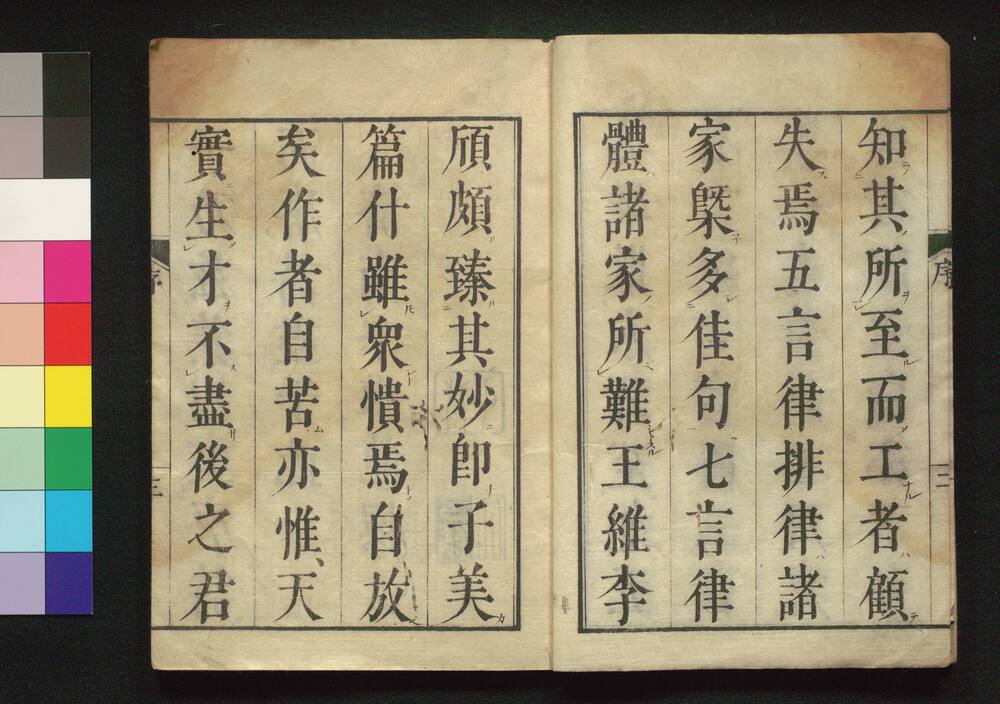 知其所至而工者顧
失焉五言律排律諸
家槩多佳句七言律
體諸家所難王維李
頎頗臻其妙卽子美
篇什雖衆憒焉自放
矣作者自苦亦惟天
實生才不盡後之君
序
三